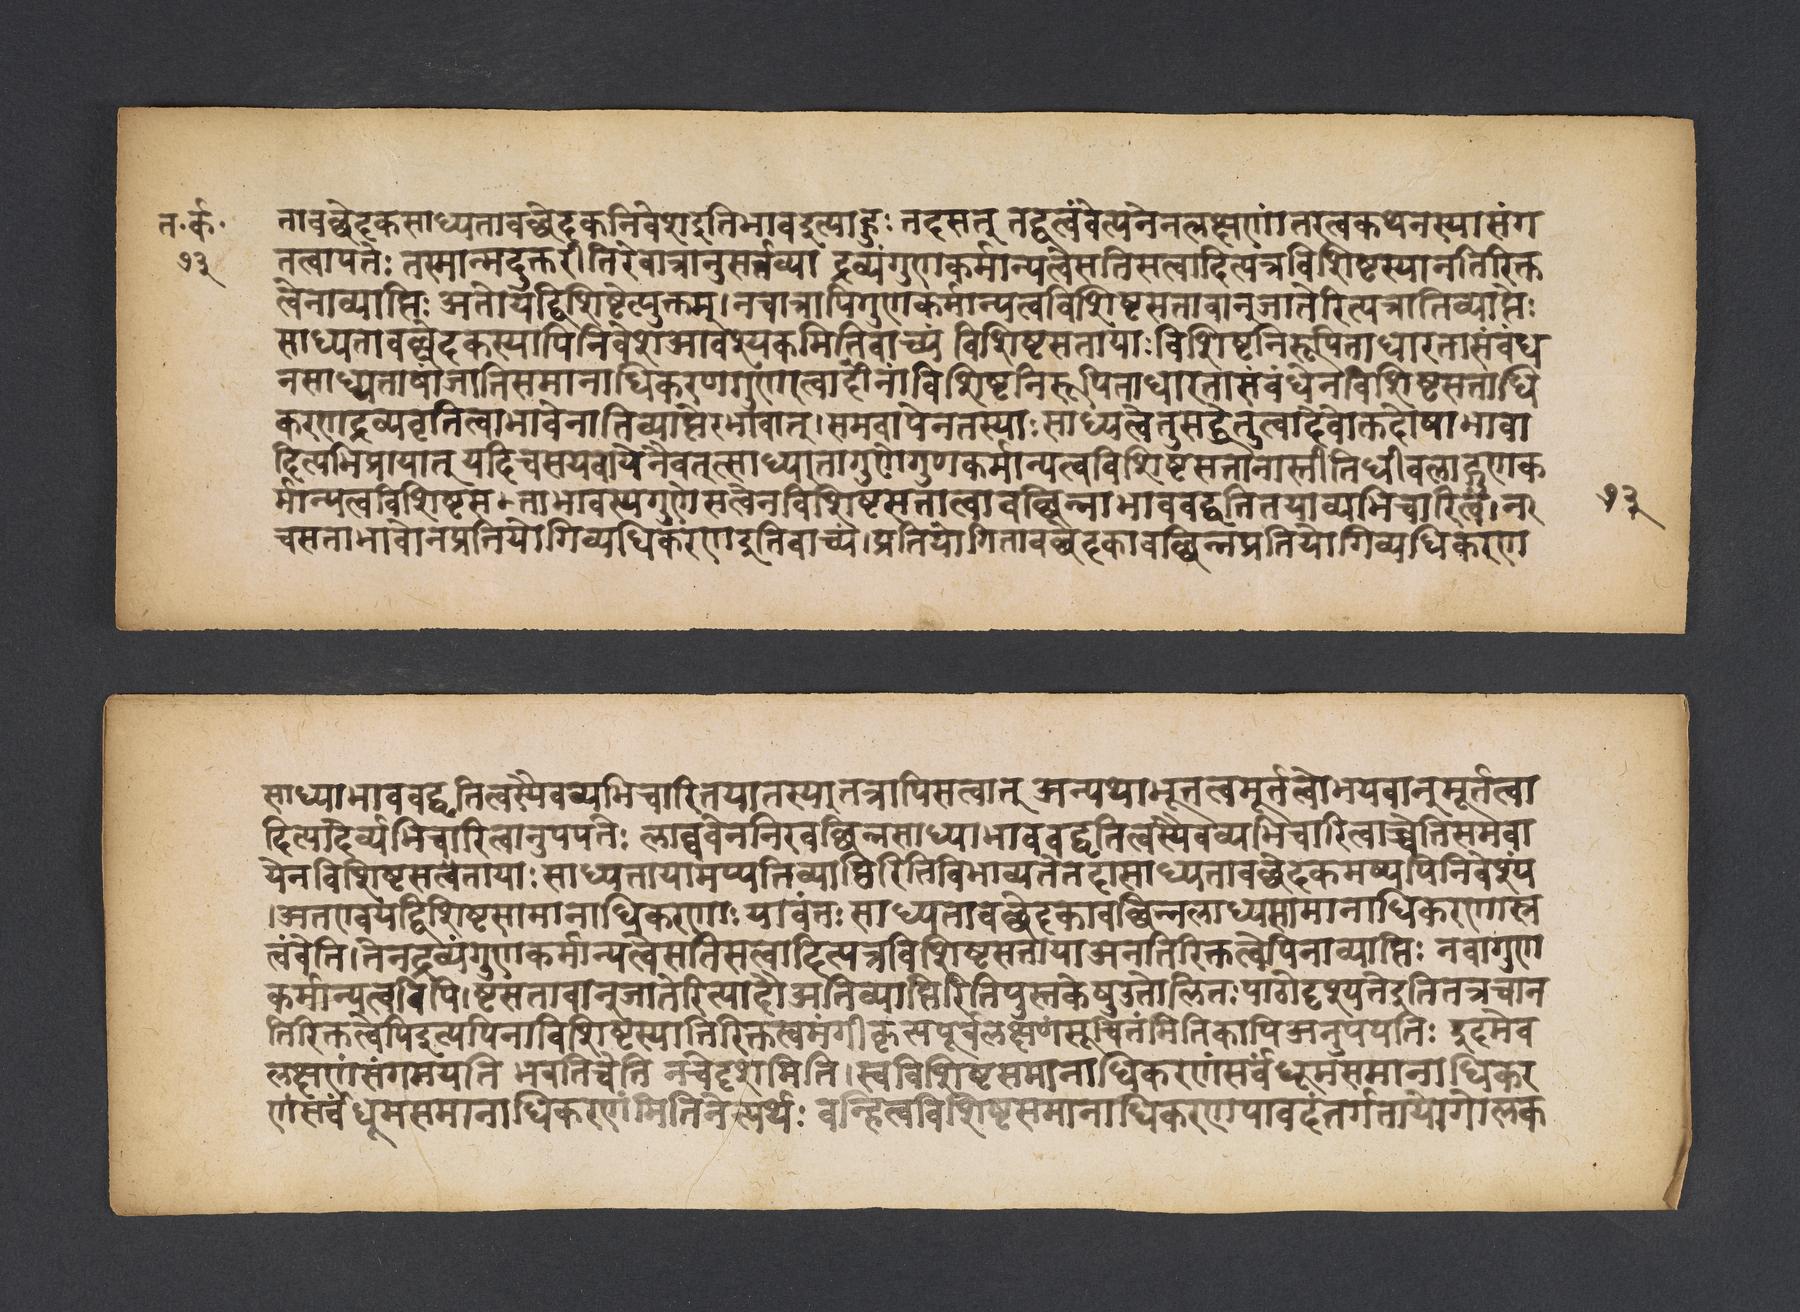 त॰र्क॰
१३
तावच्छेदकसाध्यतावच्छेदकनिवेशइतिभावइत्याहुः तदसत् तद्वत्वंवेत्यनेनलक्षणांतरत्वकथनस्यासंग
तत्वापत्तेः तस्मान्मदुक्तरीतिरेवात्रानुसर्त्तव्या द्रव्यंगुणकर्मान्यत्वेसतिसत्वादित्यत्रविशिष्टस्यानतिरिक्त
त्वेनाव्याप्तिः अतोयद्विशिष्टेत्युक्तम्।नचात्रापिगुणकर्मान्यत्वविशिष्टसत्तावान्जातेरित्यत्रातिव्याप्तेः
साध्यतावच्छेदकस्यापिनिवेशआवश्यकमितिवाच्यं विशिष्टसत्तायाःविशिष्टनिरूपिताधारतासंबंधे
नसाध्यतायांजातिसमानाधिकरणगुणत्वादीनांविशिष्टनिरूपिताधारतासंबंधेनविशिष्टसत्ताधि
करणद्रव्यवृत्तित्वाभावेनातिव्याप्तेरभावात्।समवायेनतस्याःसाध्यत्वेतुसद्धेतुत्वादेवोक्तदोषाभावा
दित्यभिप्रायात् यदिचसमवायेनैवतत्साध्यातागुणेगुणकर्मान्यत्वविशिष्टसत्तानास्तीतिधीबलाद्गुणक
र्मान्यत्वविशिष्टस॰त्ताभावस्यगुणेसत्वेनविशिष्टसत्तात्वावच्छिन्नाभाववद्वृत्तितयाव्यभिचारित्वं।न
१३
चसत्ताभावोनप्रतियोगिव्यधिकरणइतिवाच्यं।प्रतियोगितावच्छेदकावच्छिन्नप्रतियोगिव्यधिकरण
साध्याभाववद्वृत्तित्वस्यैवव्यभिचारितयातस्यातत्रापिसत्वात् अन्यथाभूतत्वमूर्तत्वोभयवान्मूर्तत्वा
दित्यादेर्व्यभिचारित्वानुपपत्तेः लाघवेननिरवच्छिन्नसाध्याभाववद्वृत्तित्वस्यैवव्यभिचारित्वाच्चेतिसमवा
येनविशिष्टसत्वेतायाःसाध्यतायामप्यतिव्याप्तिरितिविभाव्यतेतदासाध्यतावच्छेदकमप्यपिनिवेश्य
।अतएवयद्विशिष्टसामानाधिकरणाःयावंतः साध्यतावच्छेदकावच्छिन्नलाध्यसामानाधिकरणास्त
त्वंवेति।तेनद्रव्यंगुणकर्मान्यत्वेसतिसत्वादित्यत्रविशिष्टसत्तायाअनतिरिक्तत्वेपिनाव्याप्तिः नवागुण
कर्मान्यत्वविपि।ष्टसत्तावान्जातेरित्यादौअतिव्याप्तिरितिपुस्तकेषुउतोलितःपाठोदृश्यतेइतितत्रचान
तिरिक्तत्वेपिइत्यपिनाविशिष्टस्यातिरिक्तत्वमंगीकृत्सपूर्वलक्षणंसूचितंमितिकापिअनुपपत्तिः इदमेव
लक्षणंसंगमयति भवतिचेति नचेदृशमिति।स्वविशिष्टसमानाधिकरणंसर्वंधूमसमानाधिकर
णंसर्वंधूमसमानाधिकरणंमितिनेत्यर्थः वन्हित्वविशिष्टसमानाधिकरणयावदंतर्गतायोगोलक